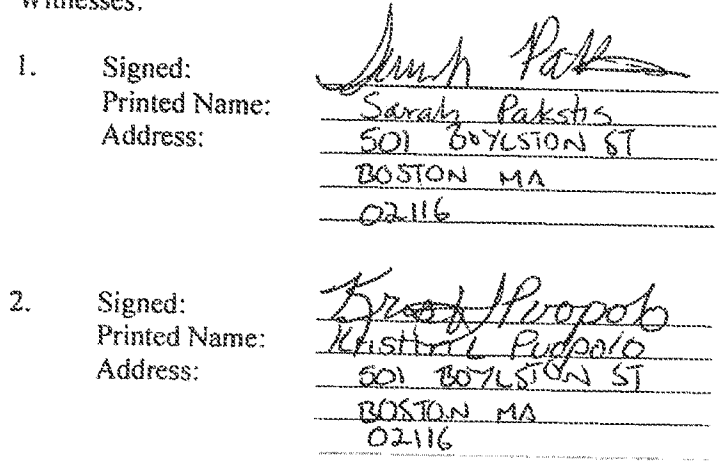 Witnesses:
1. Signed: Sarah Pak
Printed Name: Sarah Pakstis
Address: 501 BOYLSTON ST
BOSTON MA
02116
2. Signed: Puopolo
Printed Name: L Puopolo
Address: 501 BOYLSTON ST
BOSTON MA
02116